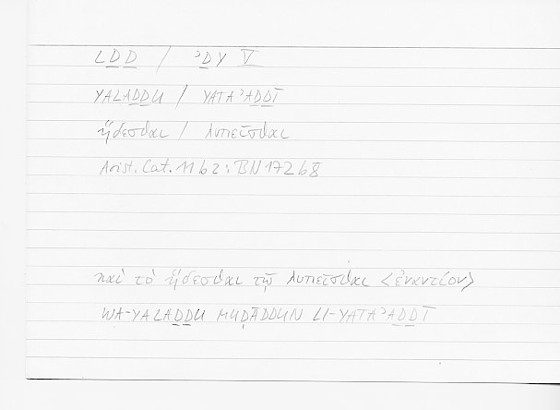 LḎḎ / ʾḎY V
YALAḎḎU / YATAʾAḎḎĪ
ἥδεσθαι / λυπεῖσθαι
Arist. Cat. 11b2: BN172b8
καὶ τὸ ἥδεσθαι τῷ λυπεῖσθαι <ἐναντίον>
WA-YALAḎḎU MUḌĀDDUN LI-YATAʾAḎḎĪ